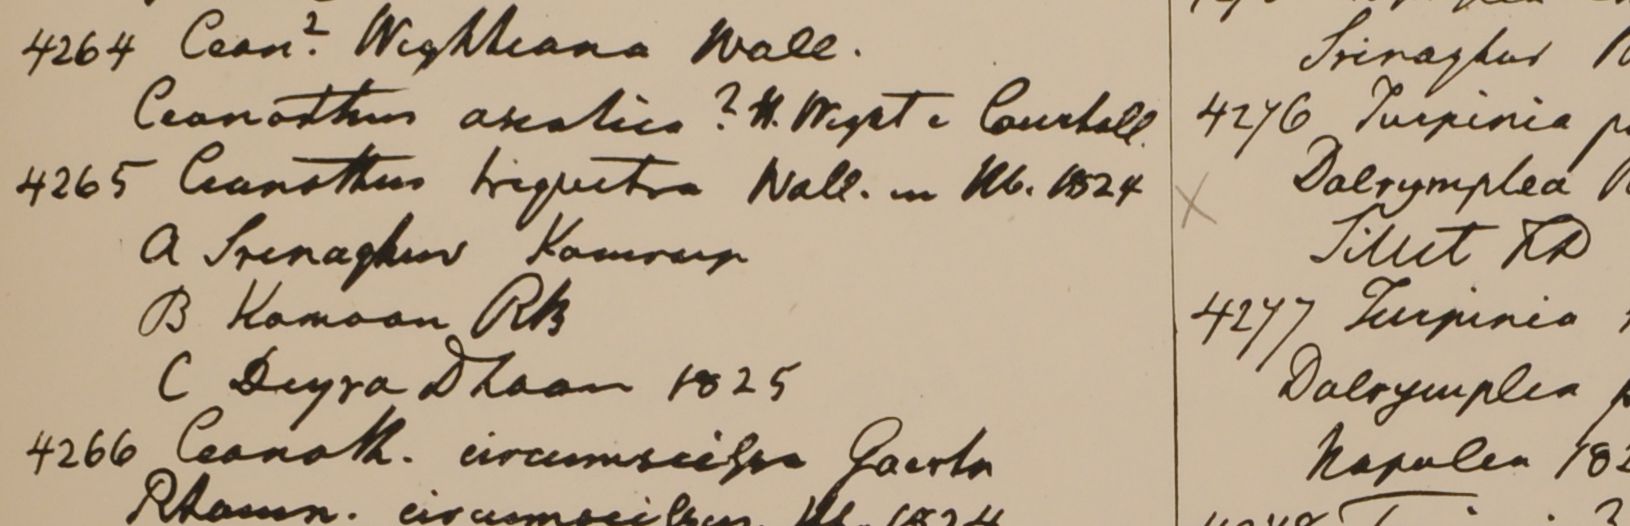 4264 Cean? Wightiana Wall.
Ceanothus asiatica? H. Wight & Courtall.
4265 Ceanothus triquetra Wall. in Hb. 1824
A Srinaghur Kamrup
B Kamaon RB
C Deyra Dhoon 1825
4266 Ceanoth. circumscissa Gaertn
Rhamn. circumscissus. Hb. 1824
Srinaghur
4276 Turpinia
Dalrymplea
X
Sillet FD
4277 Turpinia
Dalrymplea
Napalea 182